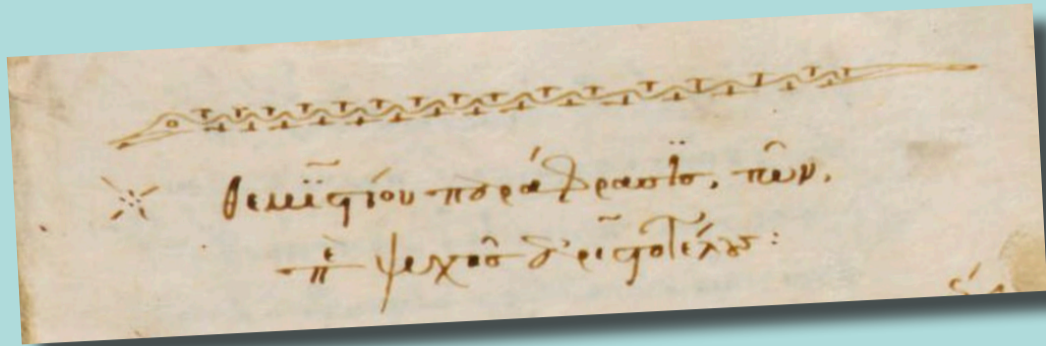 θεμιστίου παράφρασις τῶν
π ψυχῆς ἀριστοτέλους: